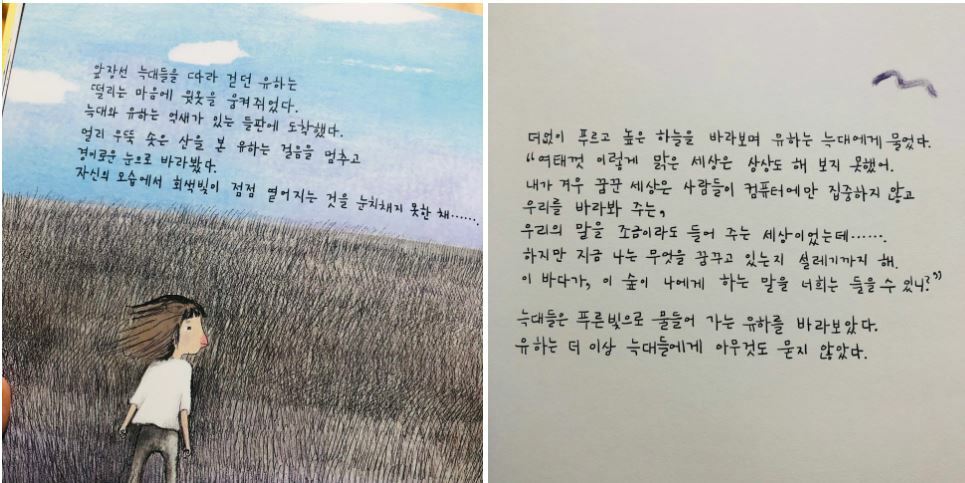 앞장선 늑대들을 따라 걷던 유하는
떨리는 마음에 윗옷을 움켜쥐었다.
늑대와 유하는 억새가 있는 들판에 도착했다.
멀리 우뚝 솟은 산을 본 유하는 걸음을 멈추고
경이로운 눈으로 바라봤다.
자신의 모습에서 회색빛이 점점 옅어지는 것을 눈치채지 못한 채……
더없이 푸르고 높은 하늘을 바라보며 유하는 늑대에게 물었다.
“여태껏 이렇게 맑은 세상은 상상도 해 보지 못했어.
내가 겨우 꿈꾼 세상은 사람들이 컴퓨터에만 집중하지 않고
우리를 바라봐 주는,
우리의 말을 조금이라도 들어 주는 세상이었는데…….
하지만 지금 나는 무엇을 꿈꾸고 있는지 설레기까지 해.
이 바다가, 이 숲이 나에게 하는 말을 너희는 들을 수 있니?”
늑대들은 푸른빛으로 물들어 가는 유하를 바라보았다.
유하는 더 이상 늑대들에게 아무것도 묻지 않았다.